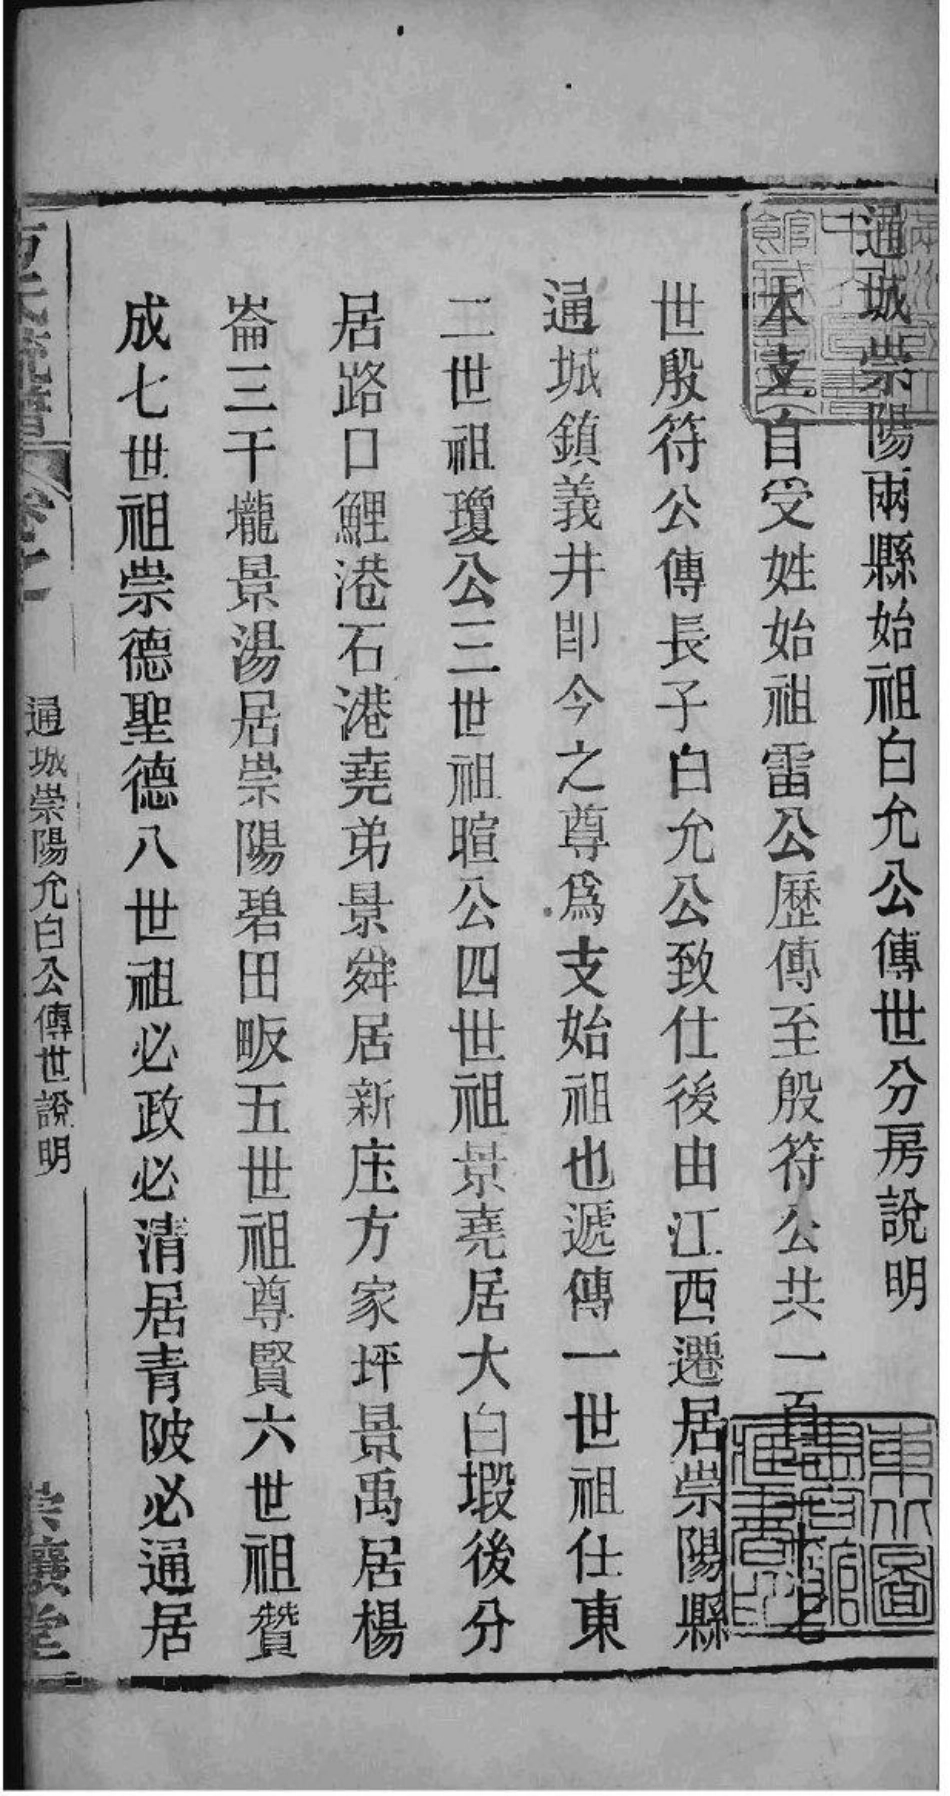 通城崇陽兩縣始祖白允公傳世分房說明
本支自受姓始祖雷公歷傳至殷符公共一百
世殷符公傳長子白允公致仕後由江西遷居崇陽縣
通城鎮義井卽今之尊爲支始祖也遞傳一世祖仕東
二世祖瓊公三世祖暄公四世祖景堯居大白塅後分
居路口鯉港石港堯弟景舜居新庄方家坪景禹居楊
崙三干壠景湯居崇陽碧田畈五世祖尊賢六世祖贊
成七世祖崇德聖德八世祖必政必清居青陂必通居
通城崇陽允白公傳世說明